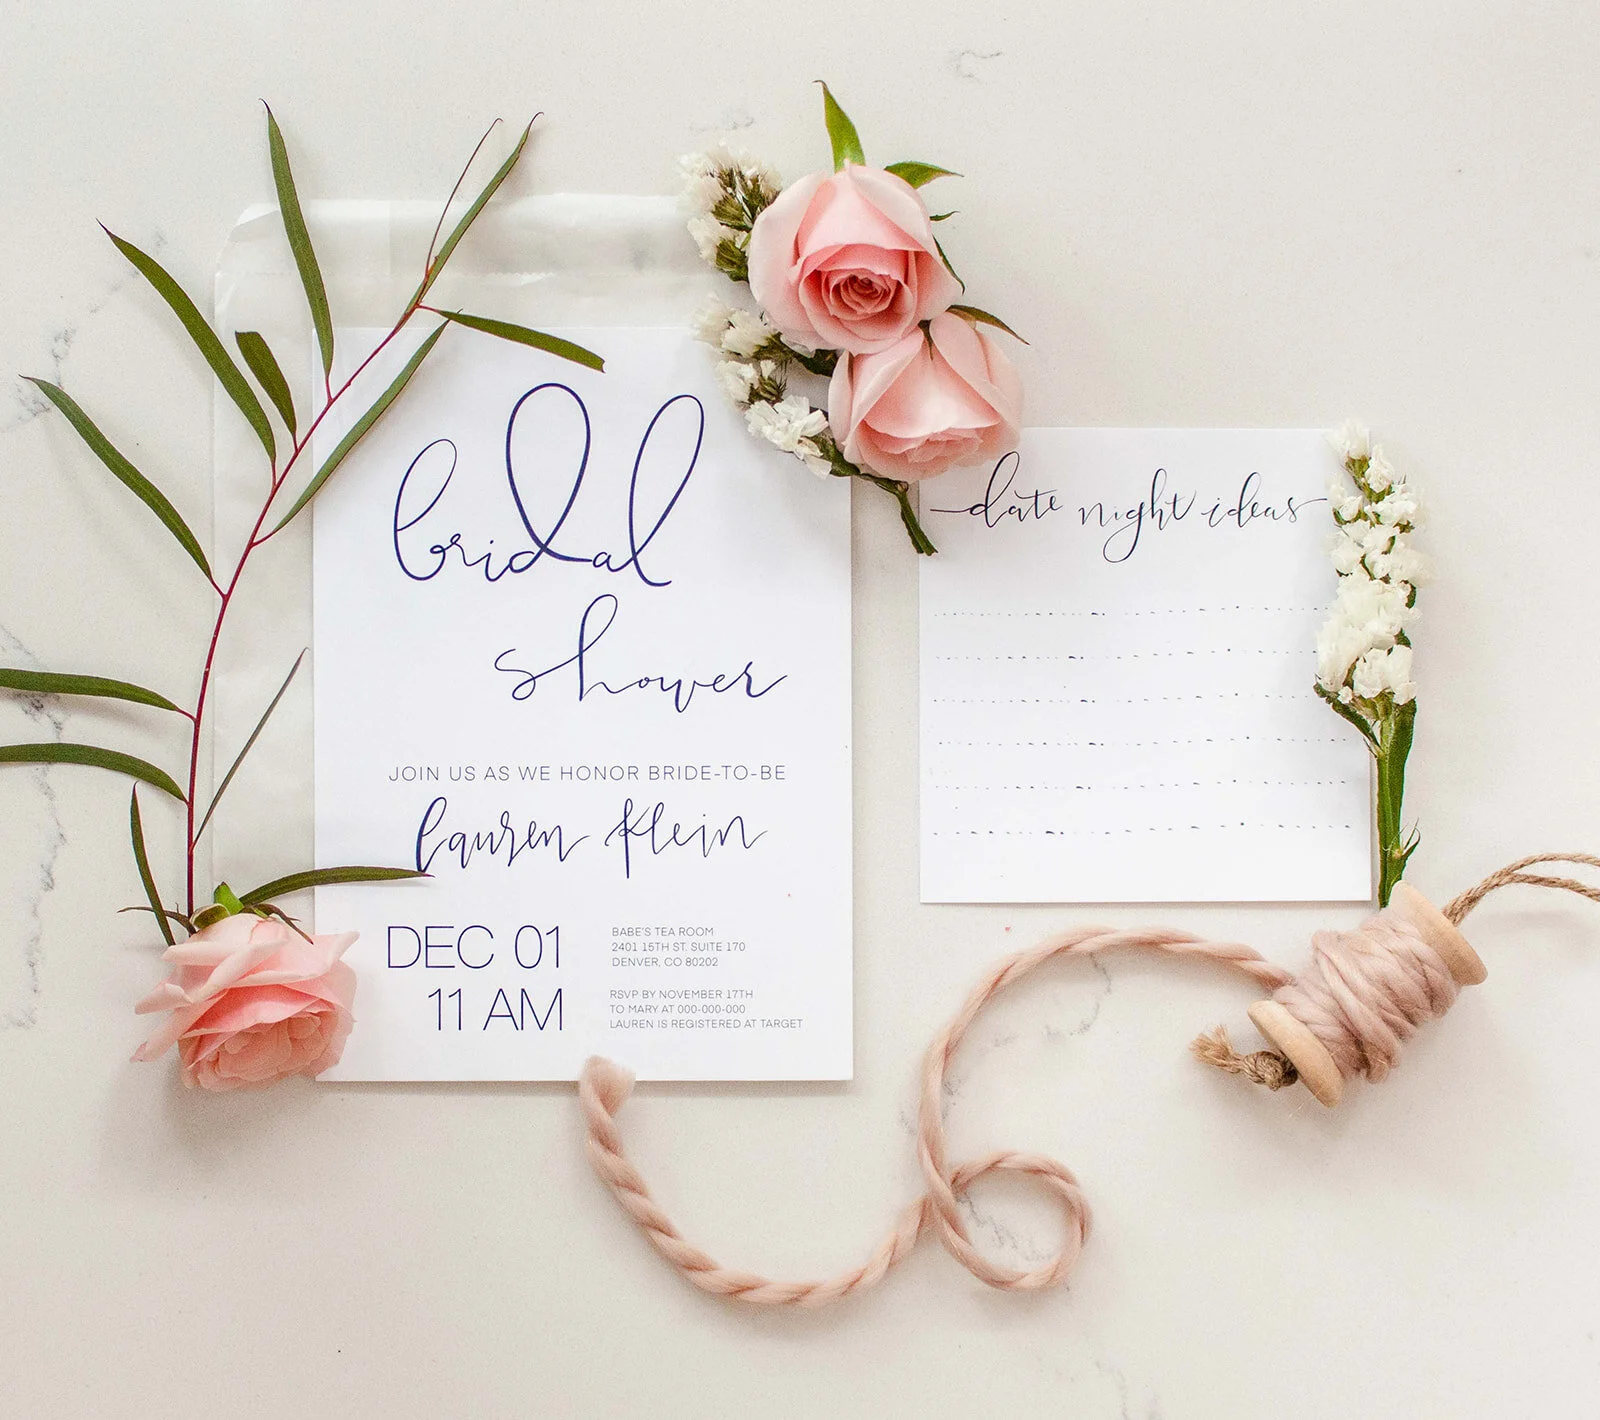 bridal
shower
JOIN US AS WE HONOR BRIDE-TO-BE
lauren klein
DEC 01
11 AM
BABE'S TEA ROOM
2401 15TH ST. SUITE 170
DENVER, CO 80202
RSVP BY NOVEMBER 17TH
TO MARY AT 000-000-000
LAUREN IS REGISTERED AT TARGET
date night ideas